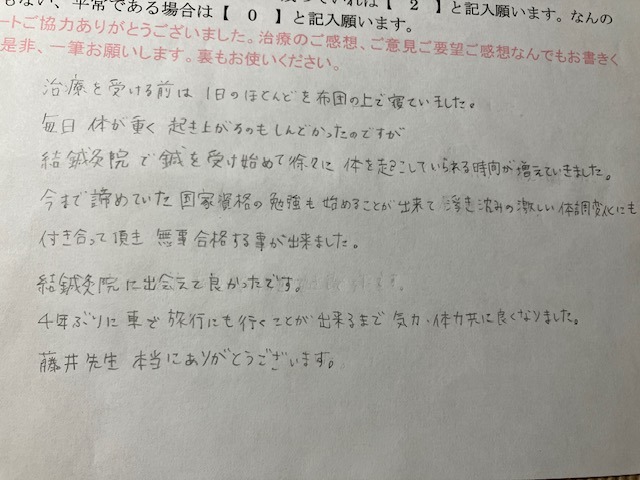 もない、平常である場合は【　0　】と記入願います。　【　2　】と記入願います。なんの
ートご協力ありがとうございました。治療のご感想、ご意見ご要望ご感想なんでもお書きく
是非、一筆お願いします。裏もお使いください。
治療を受ける前は 1日のほとんどを布団の上で寝ていました。
毎日 体が重く 起き上がるのもしんどかったのですが
結鍼灸院で鍼を受け始めて徐々に 体を起こしていられる時間が増えていきました。
今まで諦めていた国家資格の勉強も始めることが出来て 浮き沈みの激しい体調変化にも
付き合って頂き 無事合格する事が出来ました。
結鍼灸院に出会えて良かったです。
4年ぶりに車で旅行にも行くことが出来るまで 気力・体力共に良くなりました。
藤井先生 本当にありがとうございます。